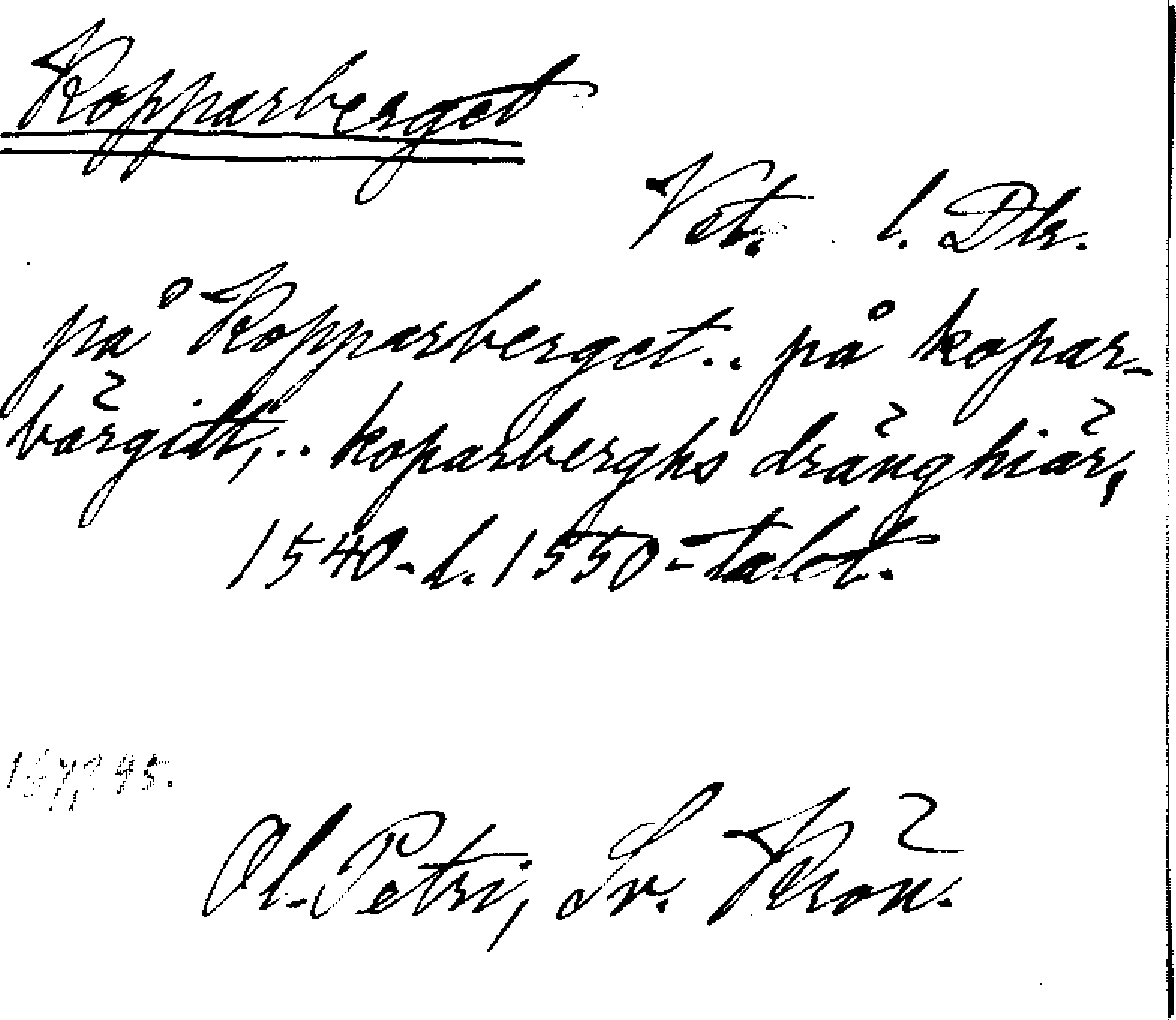 Kopparberget
Vst. l. Dlr.
på Kopparberget.. på kopar-
bärgitt,.. koparberghs dränghiär,
1540- l. 1550-talet.
Ol. Petri, Sv. Krön.